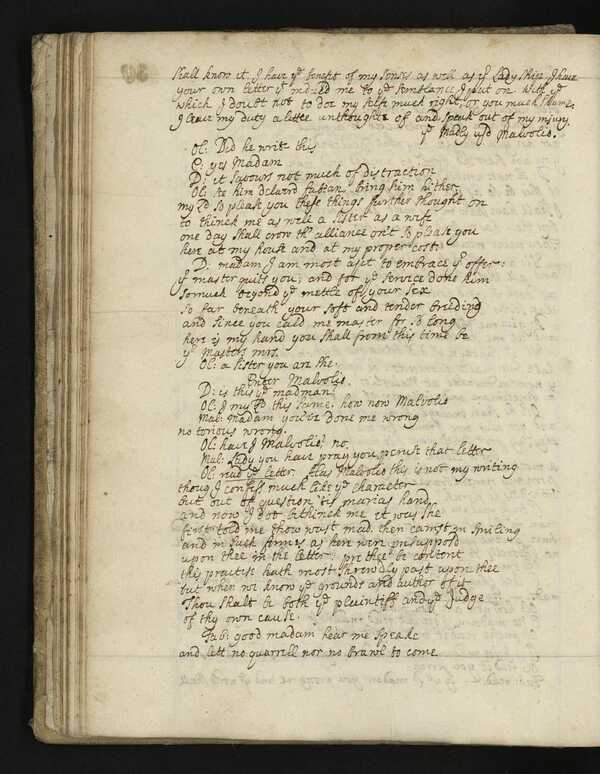 shall know it. I have ye benefit of my senses as well as yr Ladyship I have
your own letter yt induced me to ye semblance I put on. with ye
which I doubt not to doe my selfe much right, or you much shame
I leave my duty a little unthought of and speak out of my injury.
ye Madly used Malvolio.
Ol: Did he write this
C: yes Madam
D: it savours not much of distraction
Ol: se him deliverd fabian, bring him hither
my Ld so please you these things further thought on
to thinck me as well a sister as a wife
one day shall crown th' alliance on't so please you
here at my house and at my proper cost.
D: madam I am most apt to embrace yr offer:
yr master quits you; and for ye service done him
so much beyond ye mettle of your sex
so far beneath your soft and tender breeding
and since you calld me master for so long
here is my hand you shall from this time be
yr Masters mrs.
Ol: a sister you are she.
Enter Malvolio.
D: is this ye madman?
Ol: I my Ld this same. how now Malvolio
Mal: Madam you have done me wrong
notorious wrong.
Ol: have I Malvolio? no.
Mal: Lady you have pray you peruse that letter
Ol: read ye letter. Alas Malvolio this is not my writing
though I confess much like ye character
but out of question 'tis marias hand,
and now I doe bethinck me it was she
first told me thou wast mad. then camst in smiling
and in such formes as here were presupposd
upon thee in the letter: prethee be content
this practise hath most shrewdly past upon thee
but when we know ye grounds and author of it
Thou shalt be both ye plaintiff and ye Judge
of thy own cause.
Fab: good madam hear me speake
and lett no quarrell nor no brawl to come